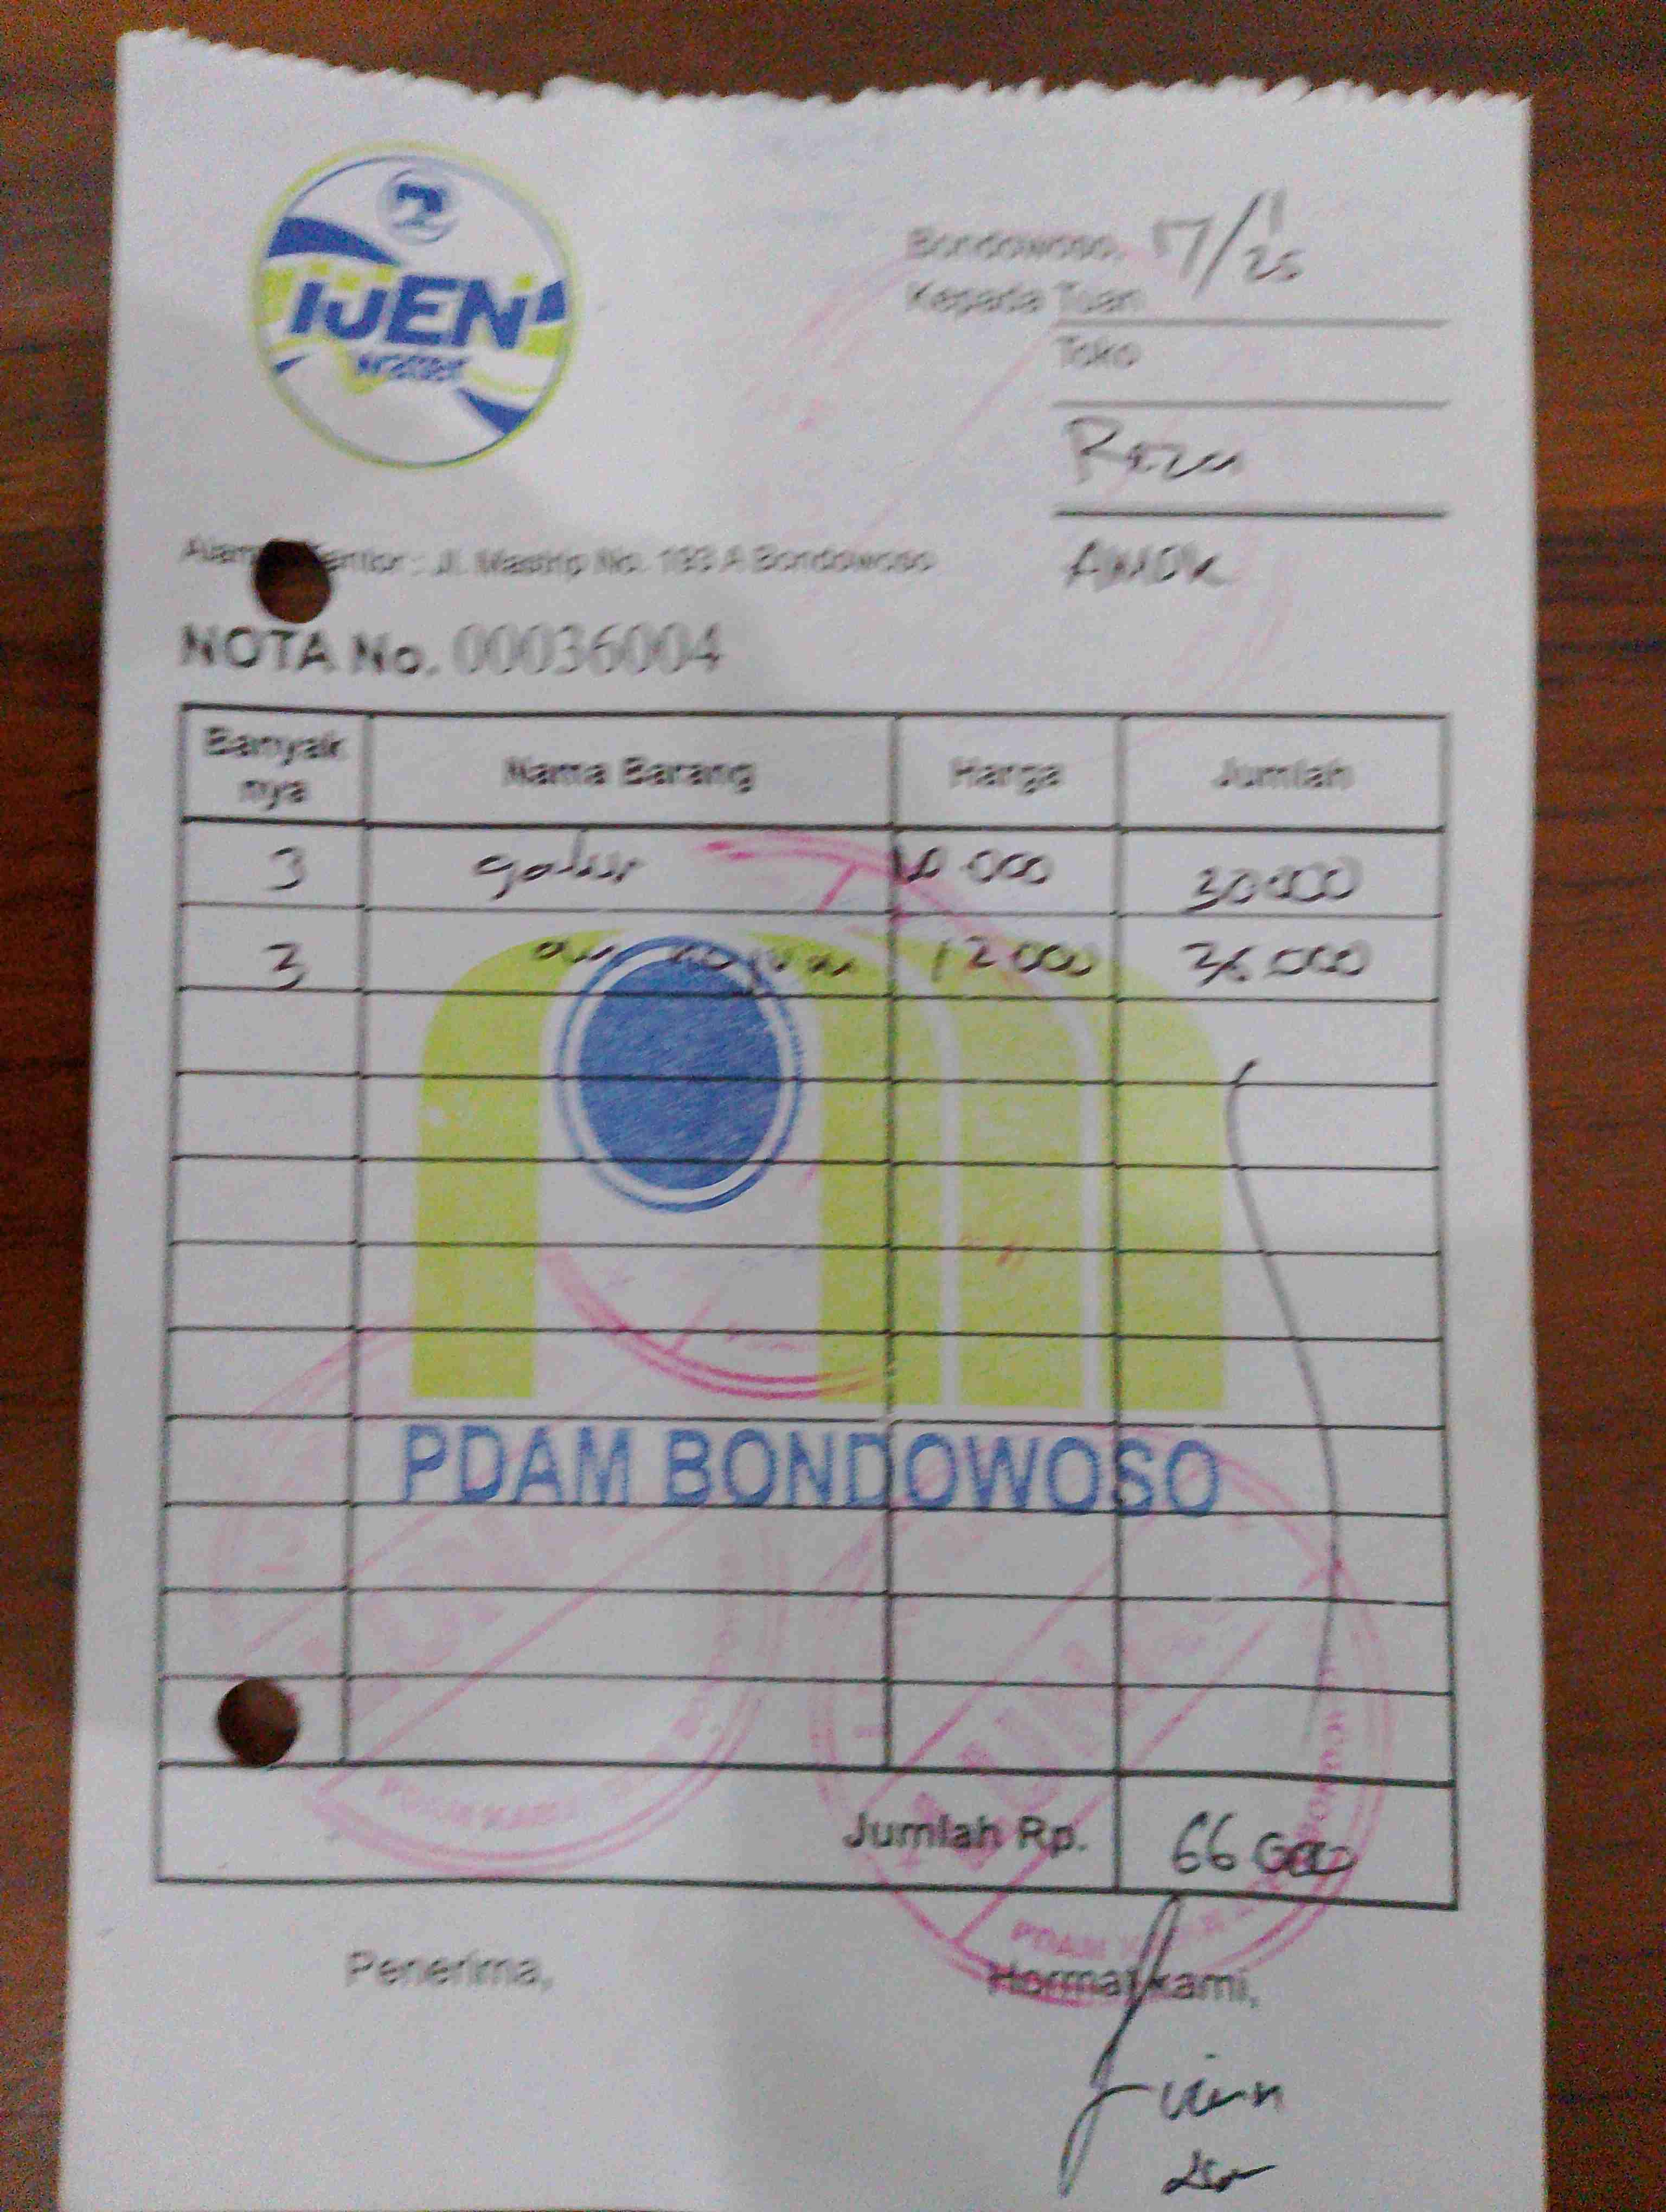 IJEN
Water
Bondowoso, 17/1/25
Kepada Tuan
Toko
Reza
Alamat Kantor : Jl. Mastrip No. 193 A Bondowoso
NOTA No. 00036004
Banyak nya Nama Barang Harga Jumlah
3 galur 10 000 30000
3 12 000 36.000
PDAM BONDOWOSO
Jumlah Rp. 66 000
Penerima, Hormat kami,